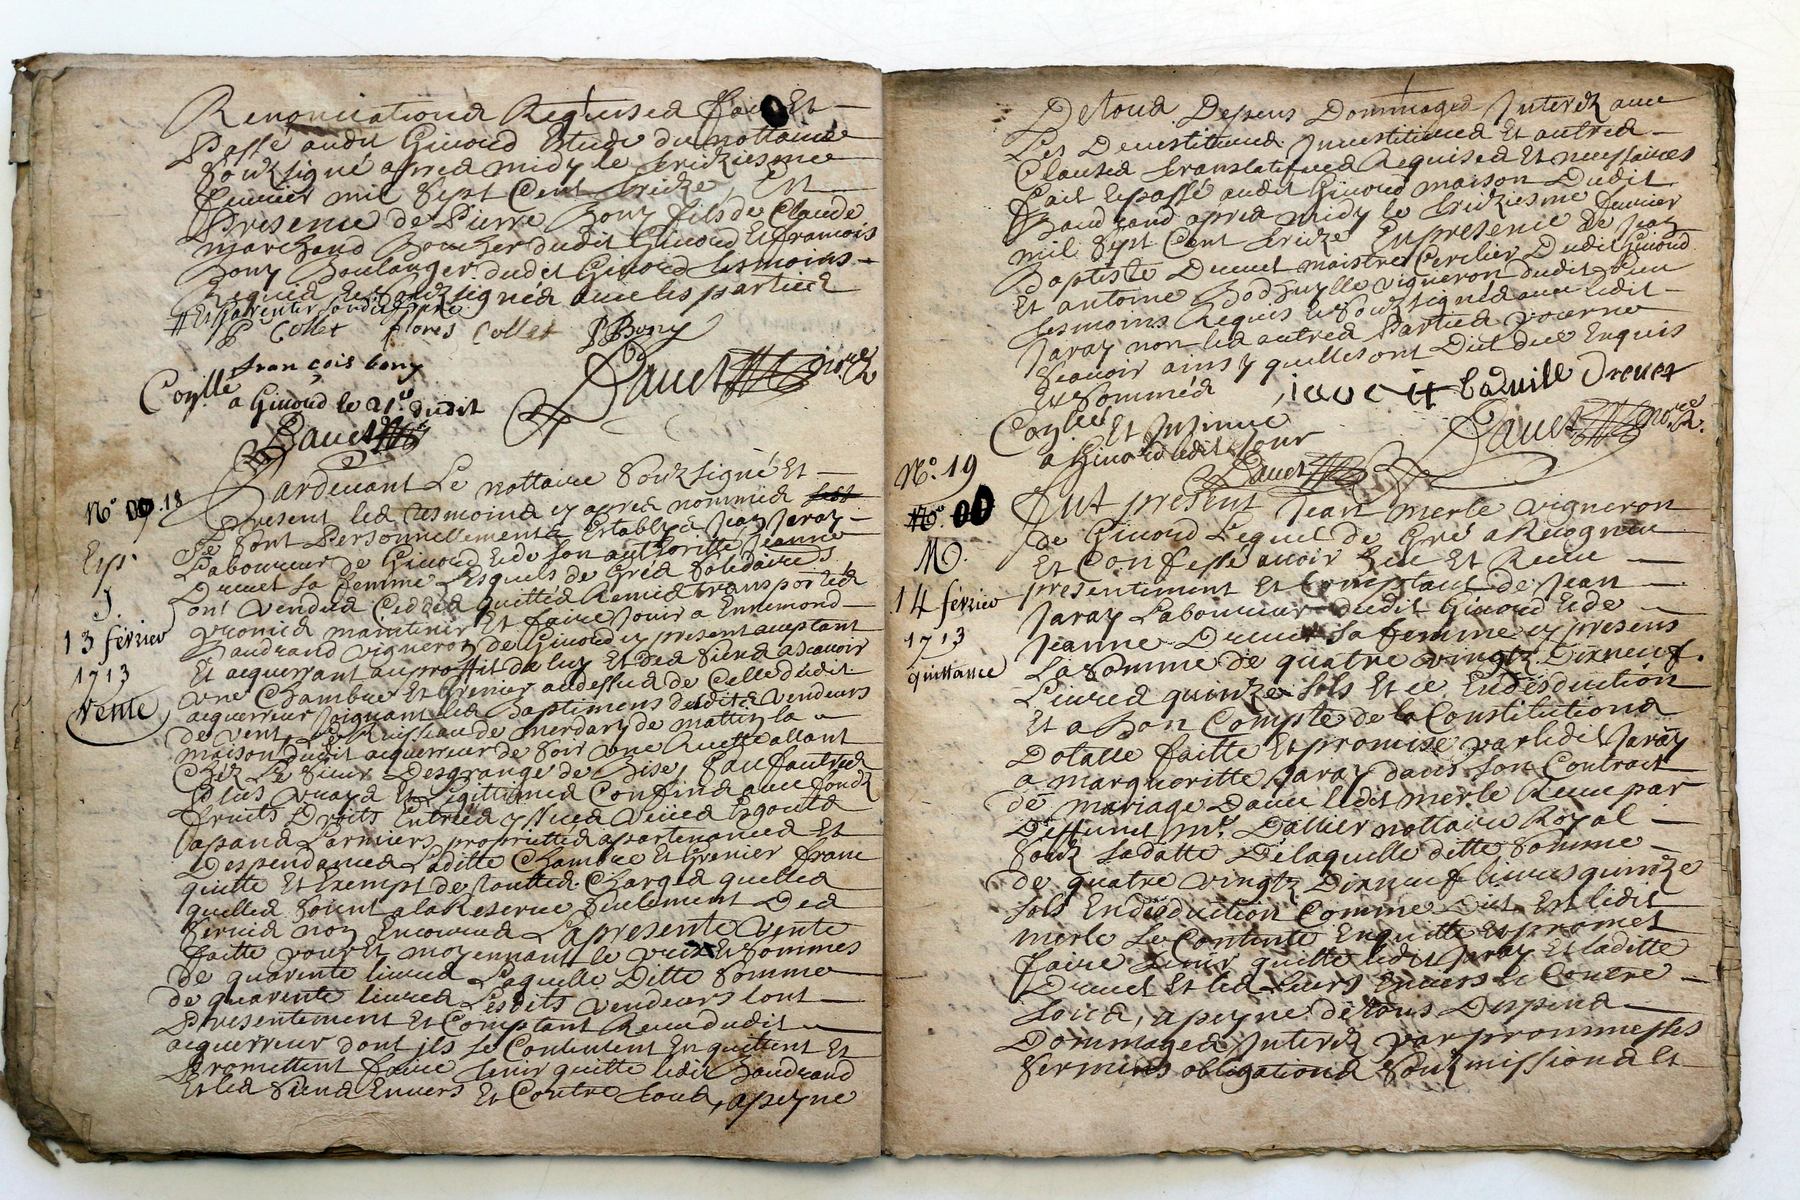 Renonciations Requises fait Et
Passé audit Givord Etude du nottaire
Soubsigné apres midy le treiziesme
feuvrier mil sept Cent treize, En
Presence de Pierre Bony fils de Claude
marchand Boucher dudit Givord Et francois
Bony Boulanger dudit Givord tesmoins
Requis Et soubsignés avec les parties
P Collet flores Collet P Bony
fran cois bony
a Givord le 21e dudit
Pardevant Le nottaire Soubsigné Et
N° 18
Present les tesmoins cy apres nommés
Se sont Personnellement Establys Jean Jaray
Laboureur de Givord Et de son authoritté Jeanne
Drevet sa femme Lesquels de Gres solidaires
ont vendus Ceddés quittés Remis transportés
promis maintenir Et faire Jouir a Ennemond
13 février
Baudrand vigneron de Givord cy present aceptant
1713
Et acquerrant au proffit de luy Et des siens ascavoir
vente
une Chambre Et Grenier audessus de Celle dudit
acquerreur Joignant les Baptimens desdits vendeurs
de vent, Le Ruisseau de merdary de mattin la
maison dudit acquerreur de soir une Ruette allant
Chez Le sieur Desgrange de Bise, sauf autres
Plus vrays Et Legitimes Confins avec fonds
fruits Droits Entrées yssues veües Egouts
Despendances Laditte Chambre Et Grenier franc
quitte Et Exempt de touttes Charges quelles
quelles soient a la Reserve seulement Des
servis non Encourus La presente vente
faitte pour Et moyennant le prix Et sommes
de quarente livres Laquelle Ditte somme
de quarente livres Lesdits vendeurs lont
Presentement Et Comptant Receu dudit
acquerreur dont ils se Contentent En quittent Et
Promettent faire tenir quitte ledit Baudrand
Et les siens Envers Et Contre tous, a peyne
De tous Depens Dommages Interez avec
Les Devestitures Investitures Et autres
Clauses translatives Requises Et necessaires
fait Et passé audit Givord maison Dudit
Baudrand apres midy le treiziesme feuvrier
mil sept Cent treize En presence de Jean
Baptiste Drevet maistre Dudit Givord
Et antoine vigneron dudit lieu
tesmoins Requis Et soubsignés avec ledit
Jaray non les autres Parties pour ne
scavoir ainsy quelles ont Dit de ce Enquis
Et sommés
Et Insinué
a Givord ledit Jour
N° 19
fut present Jean merle vigneron
de Givord Lequel de Gré a Recogneu
Et Confessé avoir Eu Et Receu
14 février
presentement Et Comptant de Jean
Jaray Laboureur dudit Givord Et de
1713
Jeanne Drevet sa femme cy presens
quittance
La somme de quatre vingtz Dixneuf
Livres quinze sols Et ce En desduction
Et a Bon Compte de la Constitutions
Dotalle faitte Et promise par ledit Jaray
a margueritte Jaray dans son Contract
de mariage Davec ledit merle Receu par
Deffunct Me Dallier nottaire Royal
soubz sa datte De laquelle ditte somme
de quatre vingtz Dixneuf livres quinze
sols En desduction Comme Dit Est ledit
merle se Contente En quitte Et promet
faire tenir quitte ledit Jaray Et laditte
Drevet Et les Leurs Envers Et Contre
toies, a peyne de tous Despens
Dommages Interez par prommesses
sermens obligations soubzmissions Et